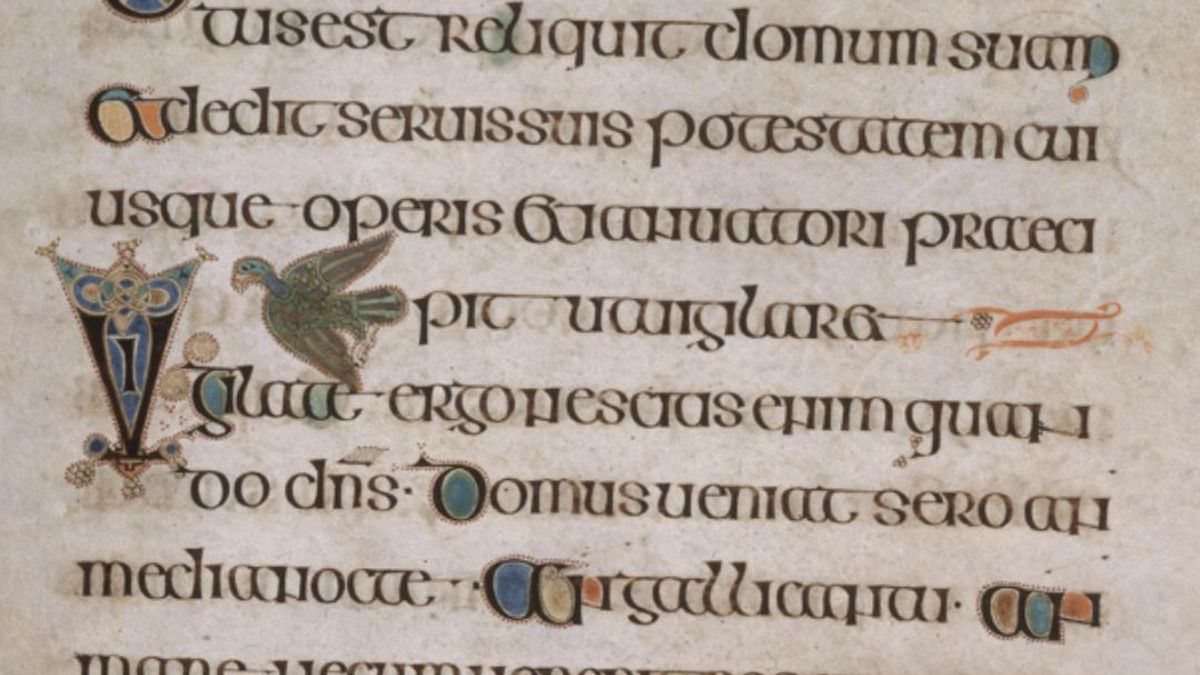 tus est reliquit domum suam
et dedit seruis suis potestatem cui
usque operis et ianuatori praeci
pit ut uigilaret
Vigilate ergo nescitas enim quan
do dns domus ueniat sero an
media nocte an galli cantu an
mane